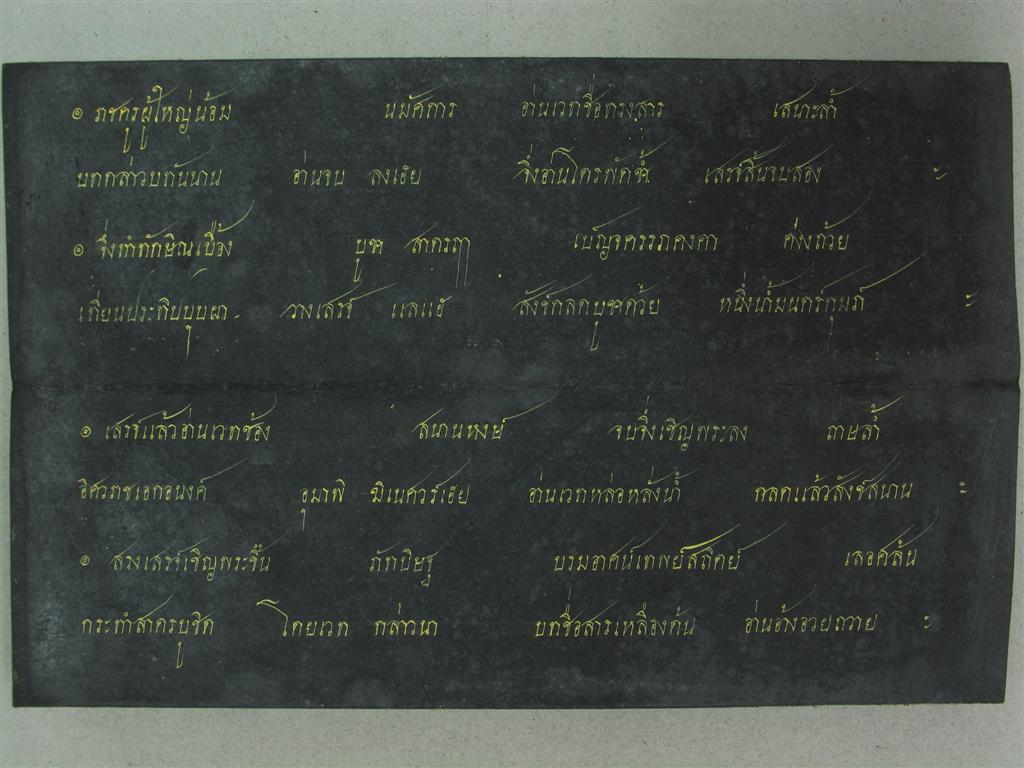 ๏ ราชครูผู้ใหญ่น้อม นมัศการ อ่านเวทชื่อทรงสาร เสนาะล้ำ
บทกล่าวบทันนาน อ่านจบ ลงเฮย จึ่งอ่านโครพัดซ้ำ เสรจ์สิ้นจบสอง ะ
๏ จึ่งทำทักษิณเบื้อง บูช สาครฤๅ เบญจครรภคงคา ค่างถ้วย
เทียนประทิบบุบผา วางเสรจ์ แลแฮ สังข์กลดบูชด้วย หนึ่งน้ำมนตร์กุมภ์ ะ
๏ เสรจ์แล้วอ่านเวทซ้อง สนานหงษ์ จบจึ่งเชิญพระลง ภาษล้ำ
อิศวราชเอกอนงค์ อุมาพิ ฆิเนศวร์เฮย อ่านเวทหล่อหลั่งน้ำ กลดแล้วสังข์สนาน ะ
๏ สรงเสรจ์เชิญพระขึ้น ภัทบิษฐ บรมอาศน์เทพย์สถิตย์ เลอศล้น
กระทำสาครบูชิต โดยเวท กล่าวนา บทชื่อสารเหลืองต้น อ่านอ้างอวยถวาย ะ